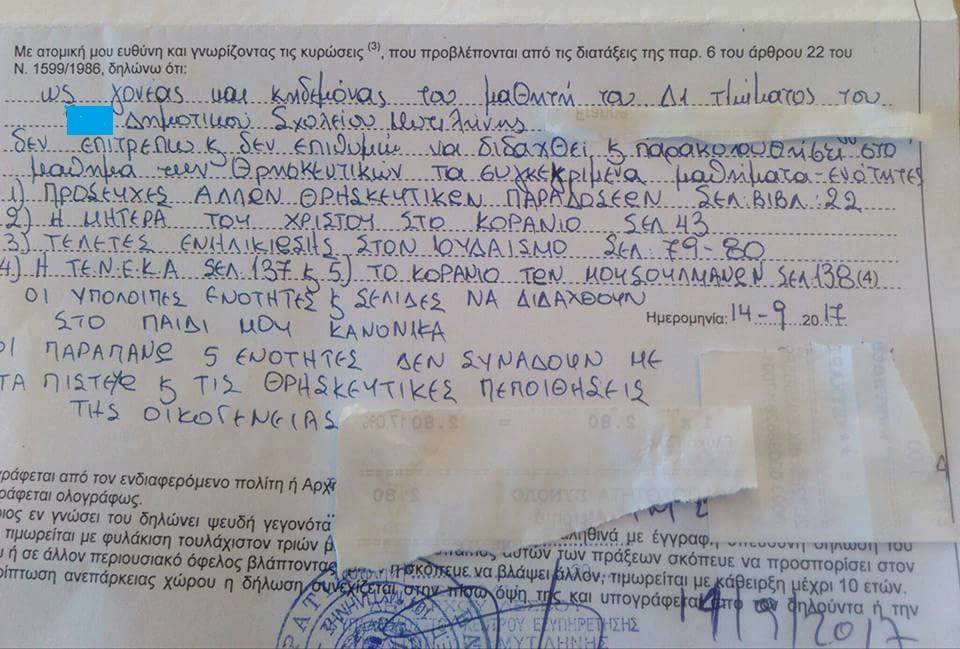 Με ατομική μου ευθύνη και γνωρίζοντας τις κυρώσεις (3), που προβλέπονται από τις διατάξεις της παρ. 6 του άρθρου 22 του
Ν. 1599/1986, δηλώνω ότι:
ως γονέας και κηδεμόνας του μαθητή του Δ1 τμήματος του
Δημοτικού Σχολείου Μυτιλήνης
δεν επιτρέπω ϗ δεν επιθυμώ να διδαχθεί ϗ παρακολουθήσει στο
μάθημα των Θρησκευτικών τα συγκεκριμένα μαθήματα-ενότητες
1) ΠΡΟΣΕΥΧΕΣ ΑΛΛΩΝ ΘΡΗΣΚΕΥΤΙΚΩΝ ΠΑΡΑΔΟΣΕΩΝ ΣΕΛ. ΒΙΒΛ.: 22
2) Η ΜΗΤΕΡΑ ΤΟΥ ΧΡΙΣΤΟΥ ΣΤΟ ΚΟΡΑΝΙΟ ΣΕΛ 43
3) ΤΕΛΕΤΕΣ ΕΝΗΛΙΚΙΩΣΗΣ ΣΤΟΝ ΙΟΥΔΑΙΣΜΟ ΣΕΛ. 79-80
4.) Η Τ.Ε.Ν.Ε.Κ.Α ΣΕΛ. 137 ϗ 5) ΤΟ ΚΟΡΑΝΙΟ ΤΩΝ ΜΟΥΣΟΥΛΜΑΝΩΝ ΣΕΛ 138 (4)
ΟΙ ΥΠΟΛΟΙΠΕΣ ΕΝΟΤΗΤΕΣ ϗ ΣΕΛΙΔΕΣ ΝΑ ΔΙΔΑΧΘΟΥΝ
ΣΤΟ ΠΑΙΔΙ ΜΟΥ ΚΑΝΟΝΙΚΑ
Ημερομηνία: 14-9 2017
ΟΙ ΠΑΡΑΠΑΝΩ 5 ΕΝΟΤΗΤΕΣ ΔΕΝ ΣΥΝΑΔΟΥΝ ΜΕ
ΤΑ ΠΙΣΤΕΥΩ ϗ ΤΙΣ ΘΡΗΣΚΕΥΤΙΚΕΣ ΠΕΠΟΙΘΗΣΕΙΣ
ΤΗΣ ΟΙΚΟΓΕΝΕΙΑΣ
ράφεται από τον ενδιαφερόμενο πολίτη ή Αρχ
ράφεται ολογράφως.
ιος εν γνώσει του δηλώνει ψευδή γεγονότα
ληθινά με έγγραφ
τιμωρείται με φυλάκιση τουλάχιστον τριών μ
αυτών των πράξεων σκόπευε να προσπορίσει στον
ή σε άλλον περιουσιακό όφελος βλάπτοντας
ή σκόπευε να βλάψει άλλον, τιμωρείται με κάθειρξη μέχρι 10 ετών.
ρίπτωση ανεπάρκειας χώρου η δήλωση συνεχίζεται στην πίσω όψη της και υπογράφεται από τον δηλούντα ή την
ΚΕΝΤΡΟΥ ΕΞΥΠΗΡΕΤΗΣΗΣ
ΜΥΤΙΛΗΝΗΣ
14/9/2017